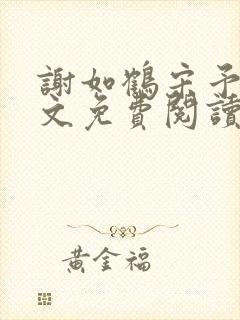 謝如鶴宋予
文免費閱讀
黃金福